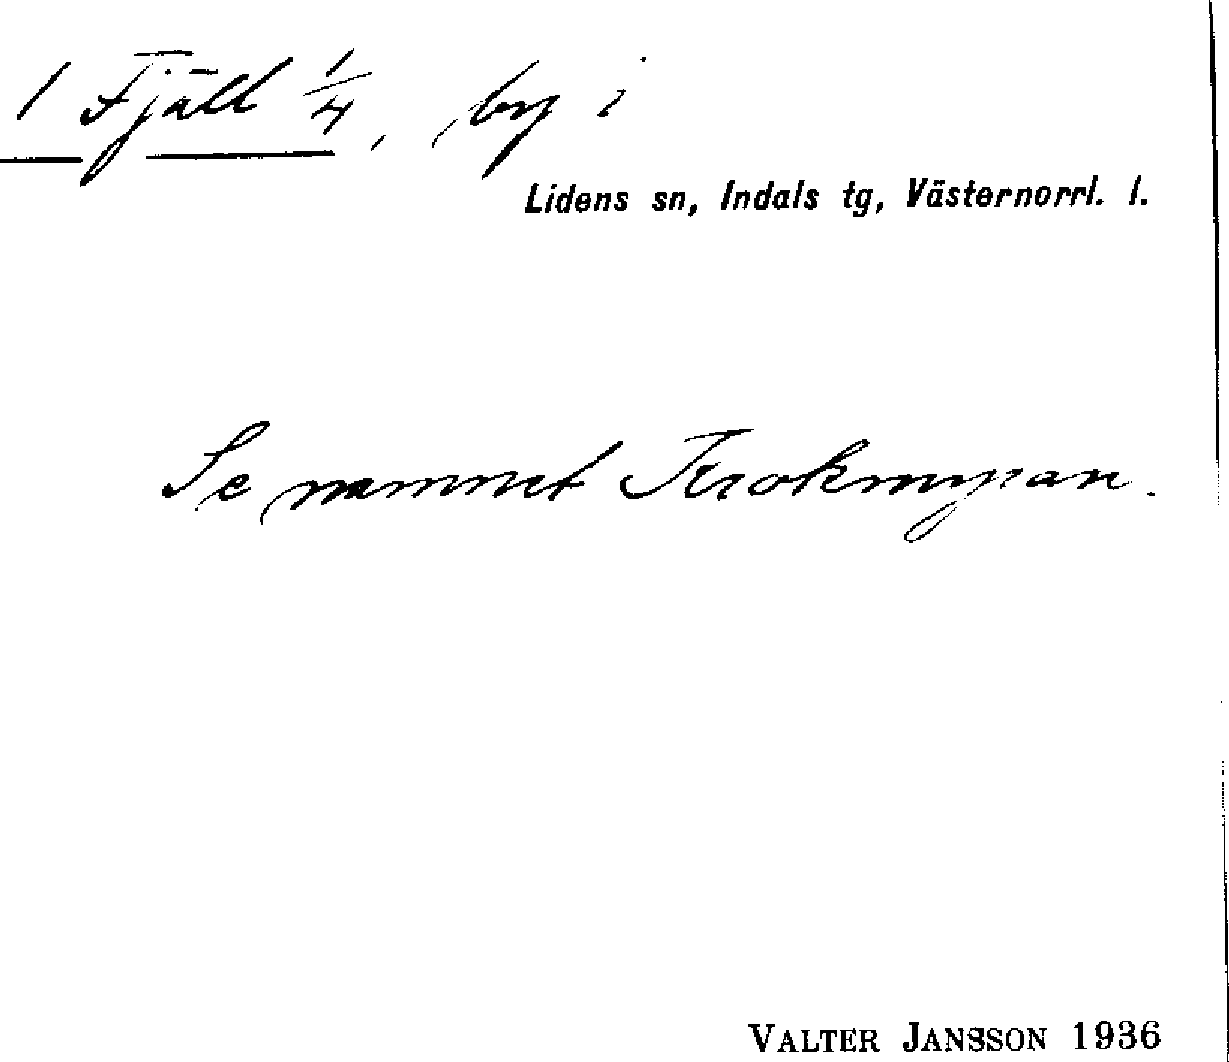 1 Fjäll 1/4, by i
Lidens sn, Indals tg, Västernorrl. l.
Se namnet Krokmyran.
VALTER JANSSON 1936